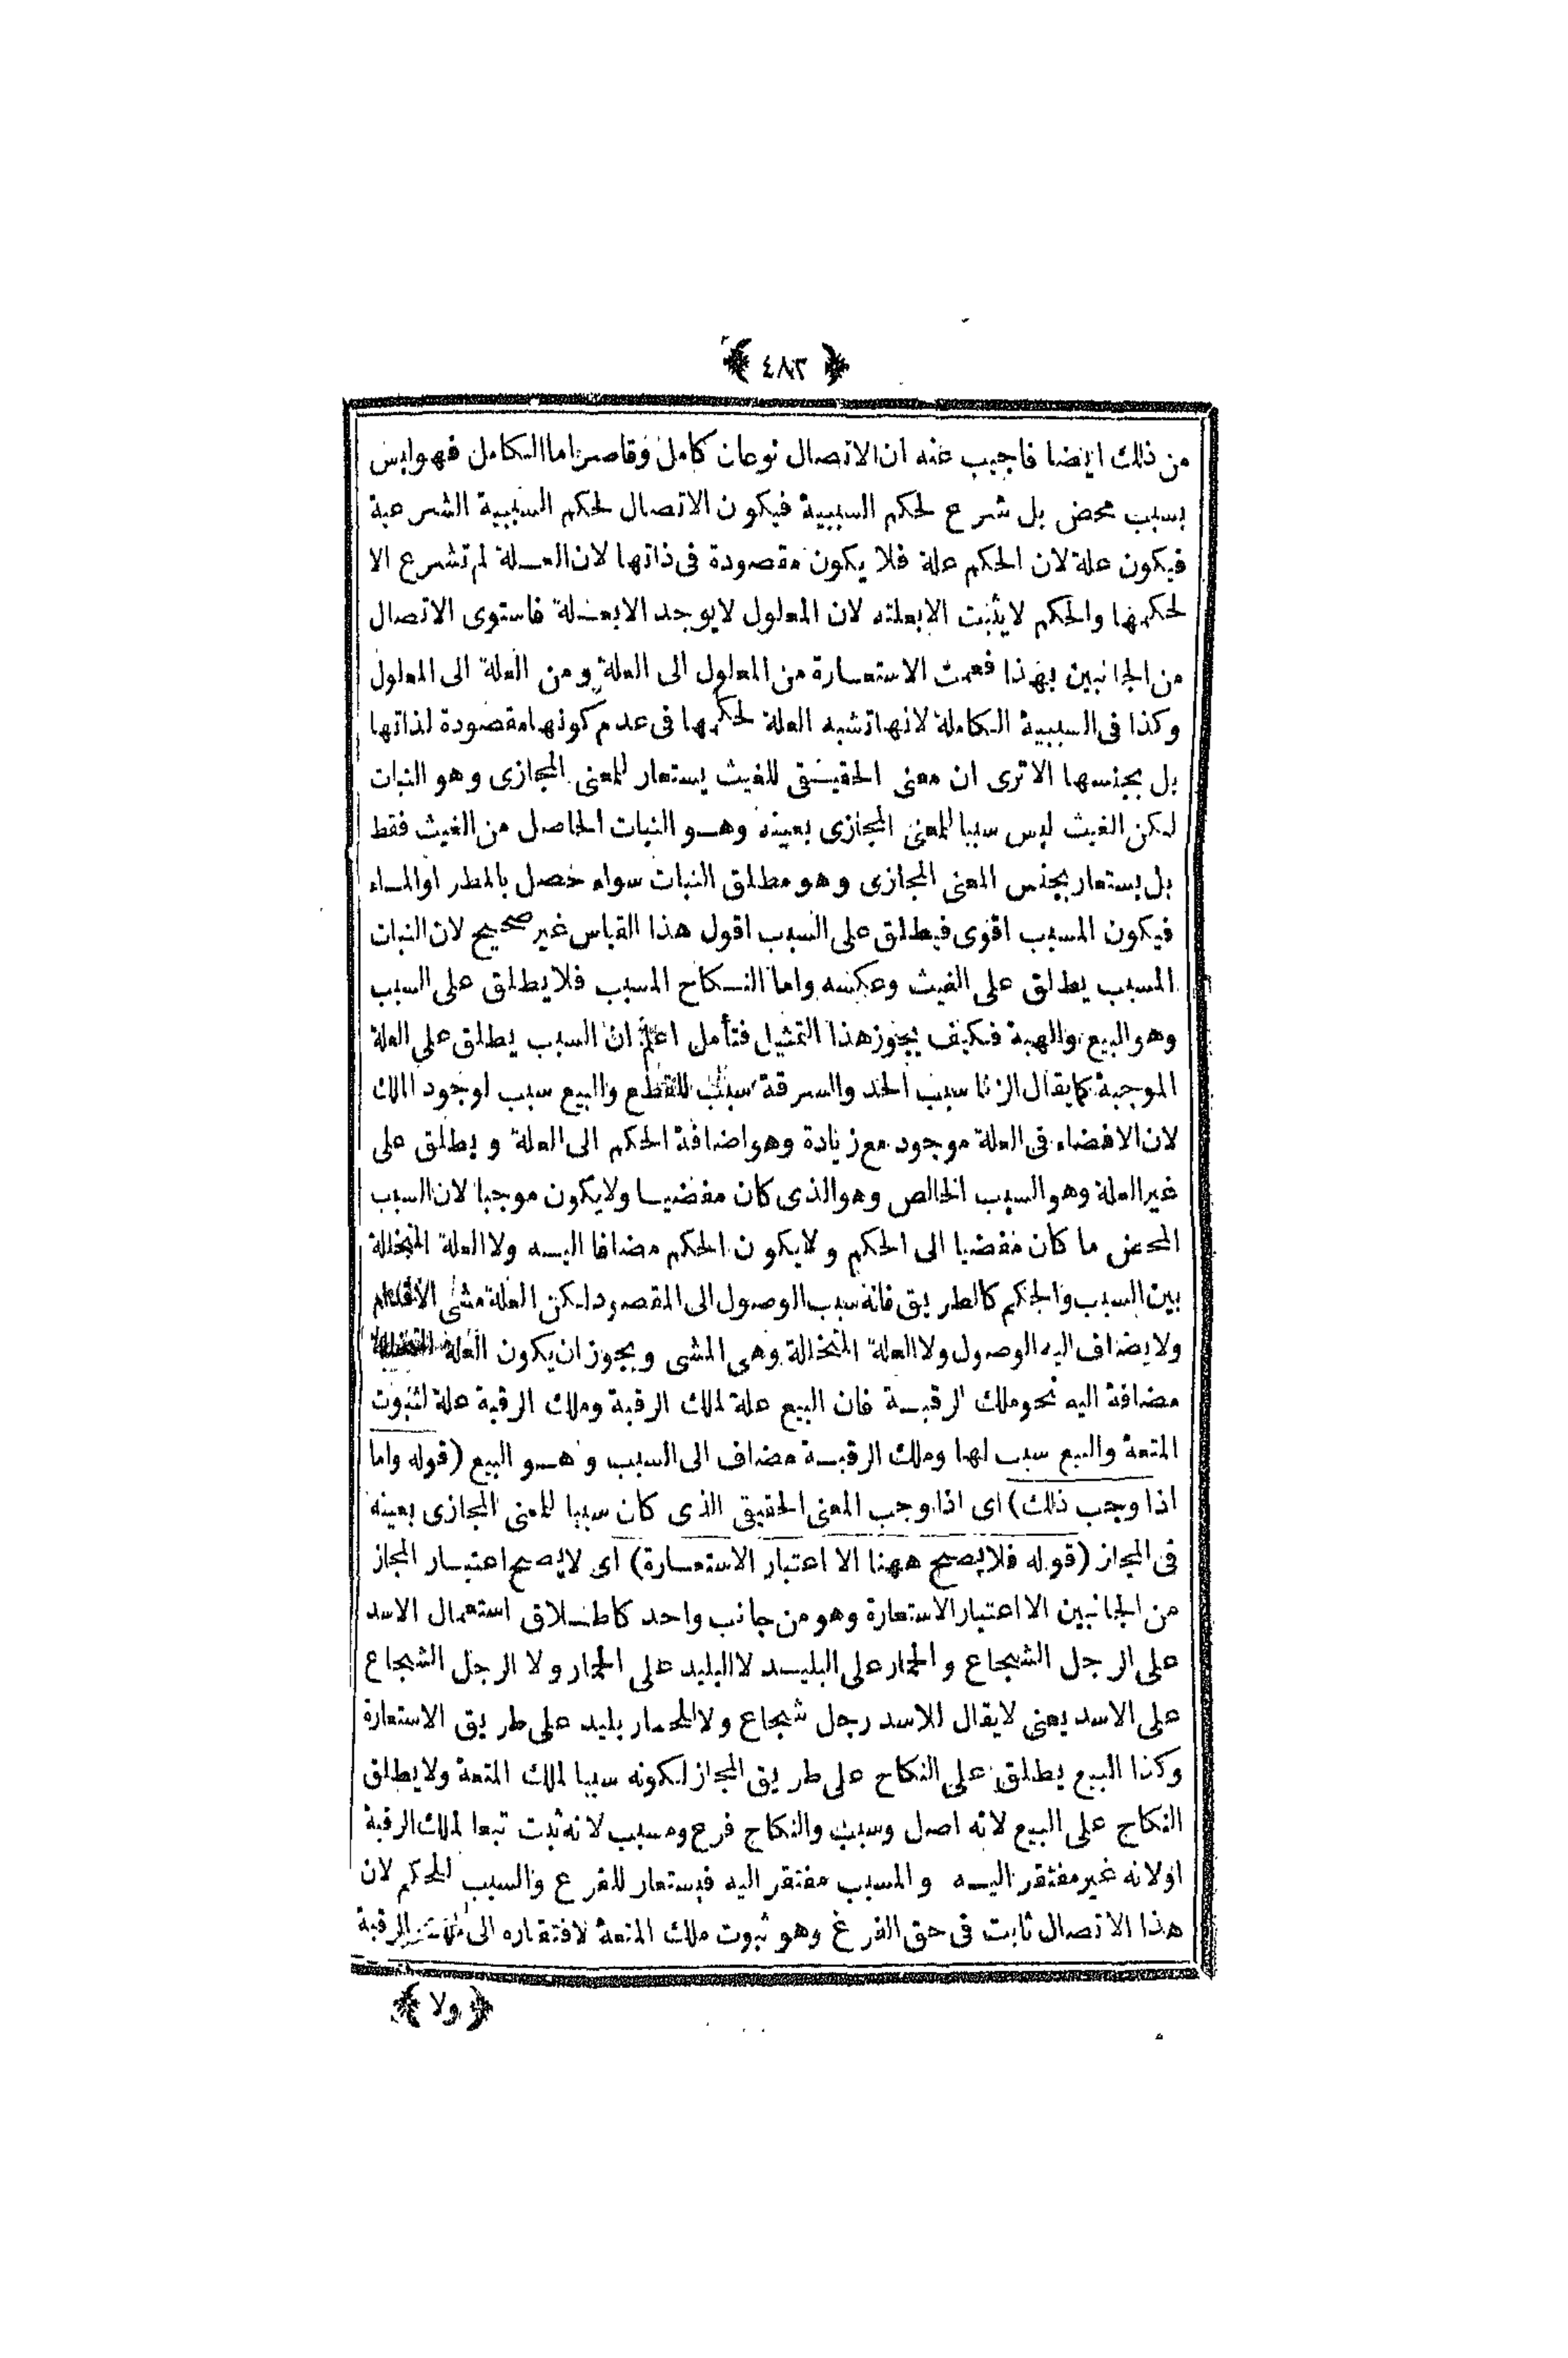 ﴿ ٤٨٣ ﴾
من ذلك ايضا فاجيب عنه ان الاتصال نوعان كامل وقاصر اما الكامل فهو ليس
بسبب محض بل شرع لحكم السببية فيكون الاتصال لحكم السببية الشرعية
فيكون علة لان الحكم علة فلا يكون مقصودة فى ذاتها لان العلة لم تشرع الا
لحكمها والحكم لا يثبت الا بعلته لان المعلول لا يوجد الا بعلة فاستوى الاتصال
من الجانبين بهذا فعمت الاستعارة من المعلول الى العلة ومن العلة الى المعلول
وكذا فى السببية الكاملة لانها تشبه العلة لحكمها فى عدم كونها مقصودة لذاتها
بل بجنسها الا ترى ان معنى الحقيقى للغيث يستعار للمعنى المجازى وهو النبات
لكن الغيث ليس سببا للمعنى المجازى بعينه وهو النبات الحاصل من الغيث فقط
بل يستعار بجنس المعنى المجازى وهو مطلق النبات سواء حصل بالمطر او الماء
فيكون المسبب اقوى فيطلق على السبب اقول هذا القياس غير صحيح لان النبات
المسبب يطلق على الغيث وعكسه واما النكاح المسبب فلا يطلق على السبب
وهو البيع والهبة فكيف يجوز هذا التمثيل فتأمل اعلم ان السبب يطلق على العلة
الموجبة كما يقال الزنا سبب الحد والسرقة سبب للقطع والبيع سبب لوجود الملك
لان الافضاء فى العلة موجود مع زيادة وهو اضافة الحكم الى العلة ويطلق على
غير العلة وهو السبب الخالص وهو الذى كان مفضيا ولا يكون موجبا لان السبب
المحض ما كان مفضيا الى الحكم ولا يكون الحكم مضافا اليه ولا العلة المتخللة
بين السبب والحكم كالطريق فانه سبب الوصول الى المقصود لكن العلة مشى الاقدام
ولا يضاف اليه الوصول ولا العلة المتخللة وهى المشى ويجوز ان يكون العلة
مضافة اليه نحو ملك الرقبة فان البيع علة لملك الرقبة وملك الرقبة علة لثبوت
المتعة والبيع سبب لها وملك الرقبة مضاف الى السبب وهو البيع (قوله واما
اذا وجب ذلك) اى اذا وجب المعنى الحقيقى الذى كان سببا للمعنى المجازى بعينه
فى المجاز (قوله فلا يصح ههنا الا اعتبار الاستعارة) اى لا يصح اعتبار المجاز
من الجانبين الا اعتبار الاستعارة وهو من جانب واحد كاطلاق استعمال الاسد
على الرجل الشجاع والحمار على البليد لا البليد على الحمار ولا الرجل الشجاع
على الاسد يعنى لا يقال للاسد رجل شجاع ولا للحمار بليد على طريق الاستعارة
وكذا البيع يطلق على النكاح على طريق المجاز لكونه سببا لملك المتعة ولا يطلق
النكاح على البيع لانه اصل وسبب والنكاح فرع ومسبب لانه ثبت تبعا لملك الرقبة
اولانه غير مفتقر اليه والمسبب مفتقر اليه فيستعار للفرع والسبب للحكم لان
هذا الاتصال ثابت فى حق الفرع وهو ثبوت ملك المتعة لافتقاره الى ملك الرقبة
﴿ ولا ﴾